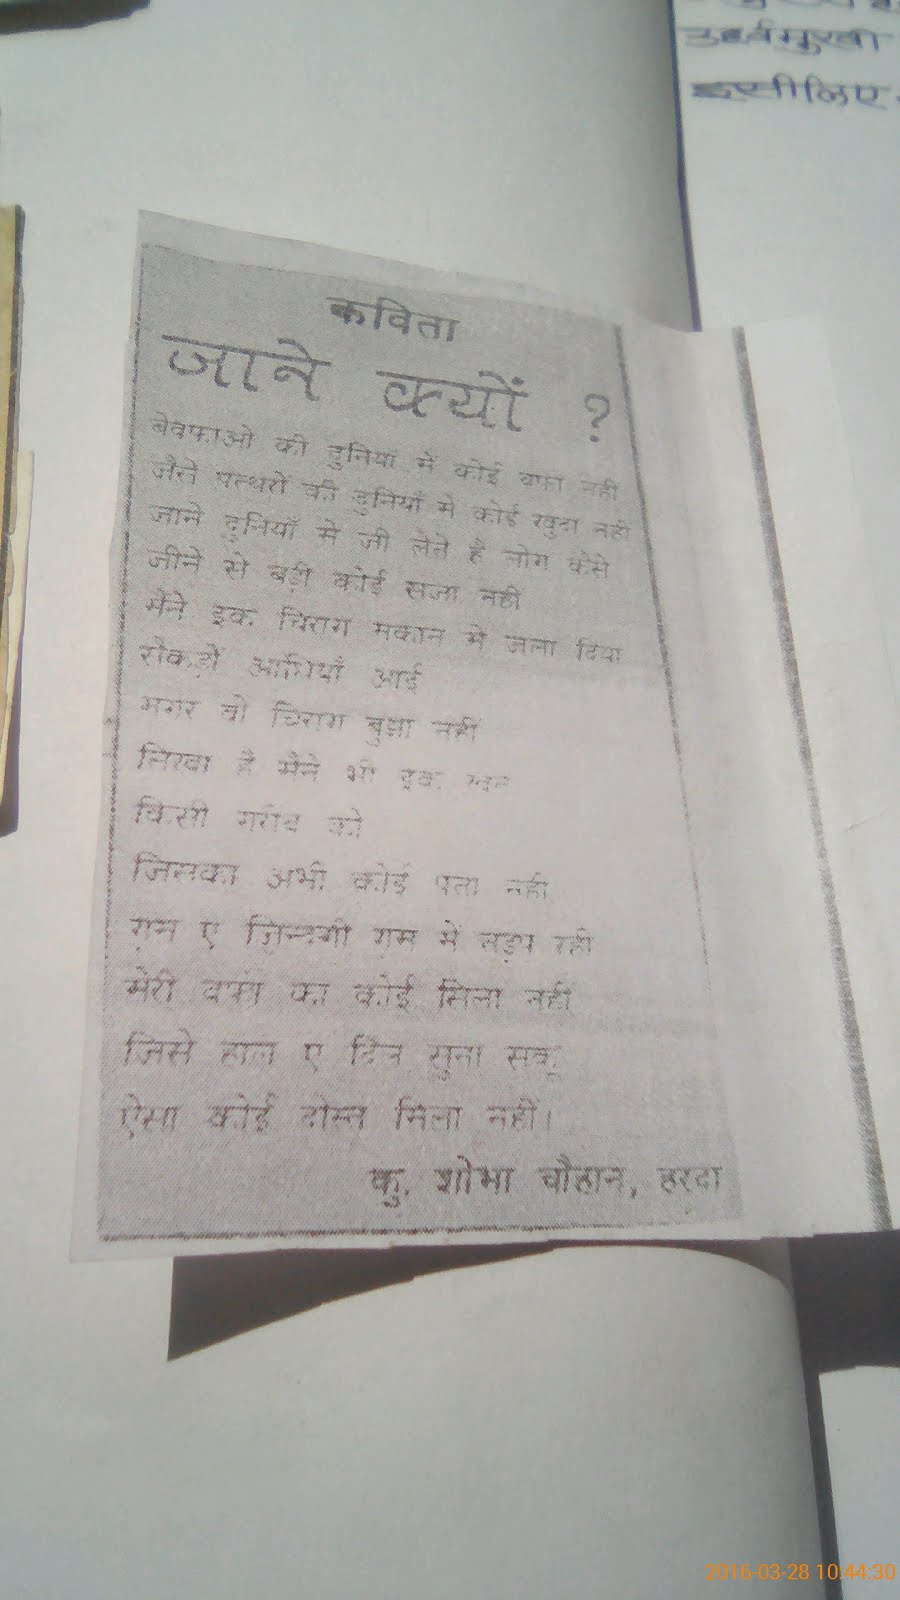 उर्ध्वमुखी
इसीलिए
कविता
जाने क्यों ?
बेवफाओ की दुनियाँ में कोई वफा नहीं
जैसे पत्थरों की दुनियाँ में कोई खुदा नहीं
जाने दुनियाँ में जी लेते है लोग कैसे
जीने से बड़ी कोई सजा नहीं
मैंने इक चिराग मकान में जला दिया
सैकड़ों आंधियाँ आई
मगर वो चिराग बुझा नहीं
लिखा है मैंने भी इक खत
किसी गरीब को
जिसका अभी कोई पता नहीं
ए ज़िन्दगी गम में तड़प रही
मेरी वफा का कोई सिला नहीं
जिसे हाल ए दिल सुना सकू
ऐसा कोई दोस्त मिला नहीं।
कु. शोभा चौहान, हरदा
2016-03-28 10:44:30